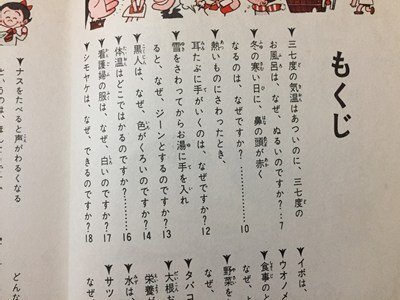 もくじ
▼三七度の気温はあついのに、三七度の
お風呂は、なぜ、ぬるいのですか?…7
▼冬の寒い日に、鼻の頭が赤く
なるのは、なぜですか?………10
▼熱いものにさわったとき、
耳たぶに手がいくのは、なぜですか?12
▼雪をさわってからお湯に手を入れ
ると、なぜ、ジーンとするのですか?13
▼黒人は、なぜ、色がくろいのですか?14
▼体温はどこではかるのですか?………16
▼看護婦の服は、なぜ、白いのですか?17
▼シモヤケは、なぜ、できるのですか?18
▼ナスをたべると声がわるくなる
▼イボは、
▼ウオノ
▼食事のと
なぜ、
▼野菜を
なぜ、
▼タバコ
▼大根お
栄養が
▼水は
▼サツ
なぜ
どんな